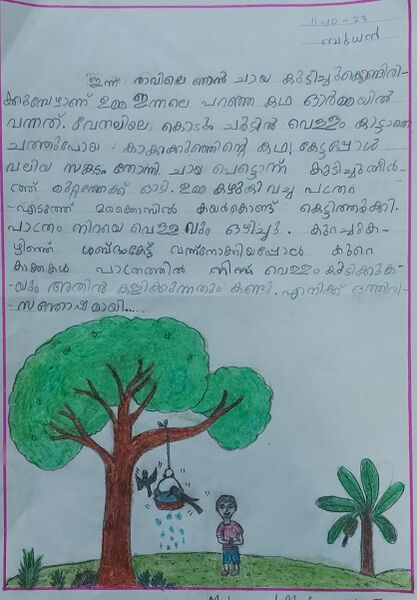 11-10-23
ബുധൻ
ഇന്ന് രാവിലെ ഞാൻ ചായ കുടിച്ചുക്കൊണ്ടിരി-
ക്കുമ്പോഴാണ് ഉമ്മ ഇന്നലെ പറഞ്ഞ കഥ ഓർമ്മയിൽ
വന്നത്. വേനലിലെ കൊടും ചൂടിൽ വെള്ളം കിട്ടാതെ
ചത്തുപോയ കാക്കക്കുഞ്ഞിന്റെ കഥ! കേട്ടപ്പോൾ
വലിയ സങ്കടം തോന്നി. ചായ പെട്ടൊന്ന് കുടിച്ചുതീർ-
ത്ത് മുറ്റത്തേക്ക് ഓടി. ഉമ്മ കഴുകി വച്ച പാത്രം
-എടുത്ത് മരക്കൊമ്പിൽ കയർകൊണ്ട് കെട്ടിത്തൂക്കി.
പാത്രം നിറയെ വെള്ളവും ഒഴിച്ചു. കുറച്ചുക-
ഴിഞ്ഞ് ശബ്ദംകേട്ട് വന്ന്നോക്കിയപ്പോൾ കുറെ
കാക്കകൾ പാത്രത്തിൽ നിന്നും വെള്ളം കുടിക്കുക-
-യും അതിൽ കളിക്കുന്നതും കണ്ടു. എനിക്ക് ഒത്തിരി-
-സന്തോഷമായി.....